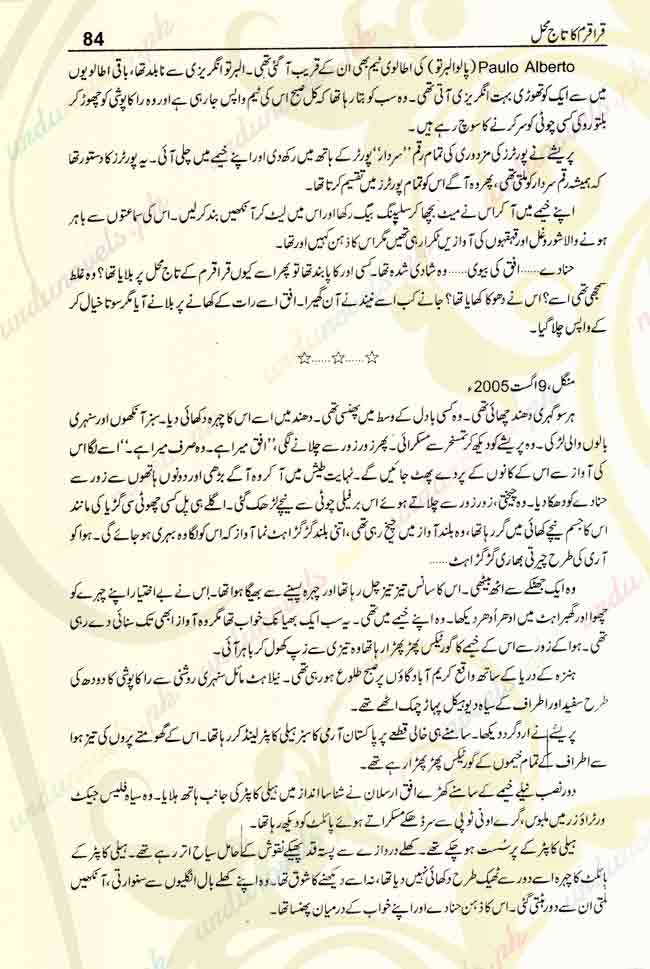 قراقرم کا تاج محل 84
Paulo Alberto (پالو البرتو) کی اطالوی ٹیم بھی ان کے قریب آ گئی تھی۔ البرتو انگریزی سے نابلد تھا، باقی اطالویوں
میں سے ایک کو تھوڑی بہت انگریزی آتی تھی۔ وہ سب کو بتا رہا تھا کہ کل صبح اس کی ٹیم واپس جا رہی ہے اور وہ راکاپوشی کو چھوڑ کر
بلتورو کی کسی چوٹی کو سر کرنے کا سوچ رہے ہیں۔
پریشے نے پورٹرز کی مزدوری کی تمام رقم ’’سردار‘‘ پورٹر کے ہاتھ میں رکھ دی اور اپنے خیمے میں چلی آئی۔ یہ پورٹرز کا دستور تھا
کہ ہمیشہ رقم سردار کو ملتی تھی، پھر وہ آگے اس کو تمام پورٹرز میں تقسیم کرتا تھا۔
اپنے خیمے میں آ کر اس نے میٹ بچھا کر سلیپنگ بیگ رکھا اور اس میں لیٹ کر آنکھیں بند کر لیں۔ اس کی سماعتوں سے باہر
ہونے والا شور و غل اور قہقہوں کی آوازیں ٹکرا رہی تھیں مگر اس کا ذہن کہیں اور تھا۔
حنادے...... افق کی بیوی...... وہ شادی شدہ تھا۔ کسی اور کا پابند تھا تو پھر اسے کیوں قراقرم کے تاج محل پر بلایا تھا؟ وہ غلط
سمجھی تھی اسے؟ اس نے دھوکا کھایا تھا؟ جانے کب اسے نیند نے آن گھیرا۔ افق اسے رات کے کھانے پر بلانے آیا مگر سوتا خیال کر
کے واپس چلا گیا۔
☆......☆......☆
منگل، 9 اگست 2005ء
ہر سو گہری دھند چھائی تھی۔ وہ کسی بادل کے وسط میں پھنسی تھی۔ دھند میں اسے اس کا چہرہ دکھائی دیا۔ سبز آنکھوں اور سنہری
بالوں والی لڑکی۔ وہ پریشے کو دیکھ کر تمسخر سے مسکرائی۔ پھر زور زور سے چلانے لگی، ’’افق میرا ہے۔ وہ صرف میرا ہے۔‘‘ اسے لگا اس
کی آواز سے اس کے کانوں کے پردے پھٹ جائیں گے۔ نہایت طیش میں آ کر وہ آگے بڑھی اور دونوں ہاتھوں سے زور سے
حنادے کو دھکا دیا۔ وہ چیختی، زور زور سے چلاتے ہوئے اس برفیلی چوٹی سے نیچے لڑھک گئی۔ اگلے ہی پل کسی چھوٹی سی گڑیا کی مانند
اس کا جسم نیچے کھائی میں گر رہا تھا، وہ بلند آواز میں چیخ رہی تھی، اتنی بلند گڑگڑاہٹ نما آواز کہ اس کو لگا وہ بہری ہو جائے گی۔ ہوا کو
آری کی طرح چیرتی بھاری گڑگڑاہٹ......
وہ ایک جھٹکے سے اٹھ بیٹھی۔ اس کا سانس تیز تیز چل رہا تھا اور چہرہ پسینے سے بھیگا ہوا تھا۔ اس نے بے اختیار اپنے چہرے کو
چھوا اور گھبراہٹ میں ادھر اُدھر دیکھا۔ وہ اپنے خیمے میں تھی۔ یہ سب ایک بھیانک خواب تھا مگر وہ آواز ابھی تک سنائی دے رہی
تھی۔ ہوا کے زور سے اس کے خیمے کا گورٹیکس پھڑپھڑا رہا تھا وہ تیزی سے زپ کھول کر باہر آئی۔
ہنزہ کے دریا کے ساتھ واقع کریم آباد گاؤں پر صبح طلوع ہو رہی تھی۔ نیلاہٹ مائل سنہری روشنی سے راکاپوشی کا دودھ کی
طرح سفید اور اطراف کے سیاہ دیوہیکل پہاڑ چمک اٹھے تھے۔
پریشے نے اردگرد دیکھا۔ سامنے ہی خالی قطعے پر پاکستان آرمی کا سبز ہیلی کاپٹر لینڈ کر رہا تھا۔ اس کے گھومتے پروں کی تیز ہوا
سے اطراف کے تمام خیموں کے گورٹیکس پھڑپھڑا رہے تھے۔
دور نصب نیلے خیمے کے سامنے کھڑے افق ارسلان نے شناسا انداز میں ہیلی کاپٹر کی جانب ہاتھ ہلایا۔ وہ سیاہ فلیس جیکٹ
و ٹراؤزر میں ملبوس، گرے اونی ٹوپی سے سر ڈھکے مسکراتے ہوئے پائلٹ کو دیکھ رہا تھا۔
ہیلی کاپٹر کے پر سُست ہو چکے تھے۔ کھلے دروازے سے پستہ قد پھیکے نقوش کے حامل سیاح اتر رہے تھے۔ ہیلی کاپٹر کے
پائلٹ کا چہرہ اسے دور سے ٹھیک طرح دکھائی نہیں دیا تھا، نہ اسے دیکھنے کا شوق تھا۔ وہ اپنے کھلے بال انگلیوں سے سنوارتی، آنکھیں
ملتی ان سے دور ہٹتی گئی۔ اس کا ذہن حنادے اور اپنے خواب کے درمیان پھنسا تھا۔
urdunovels.pk